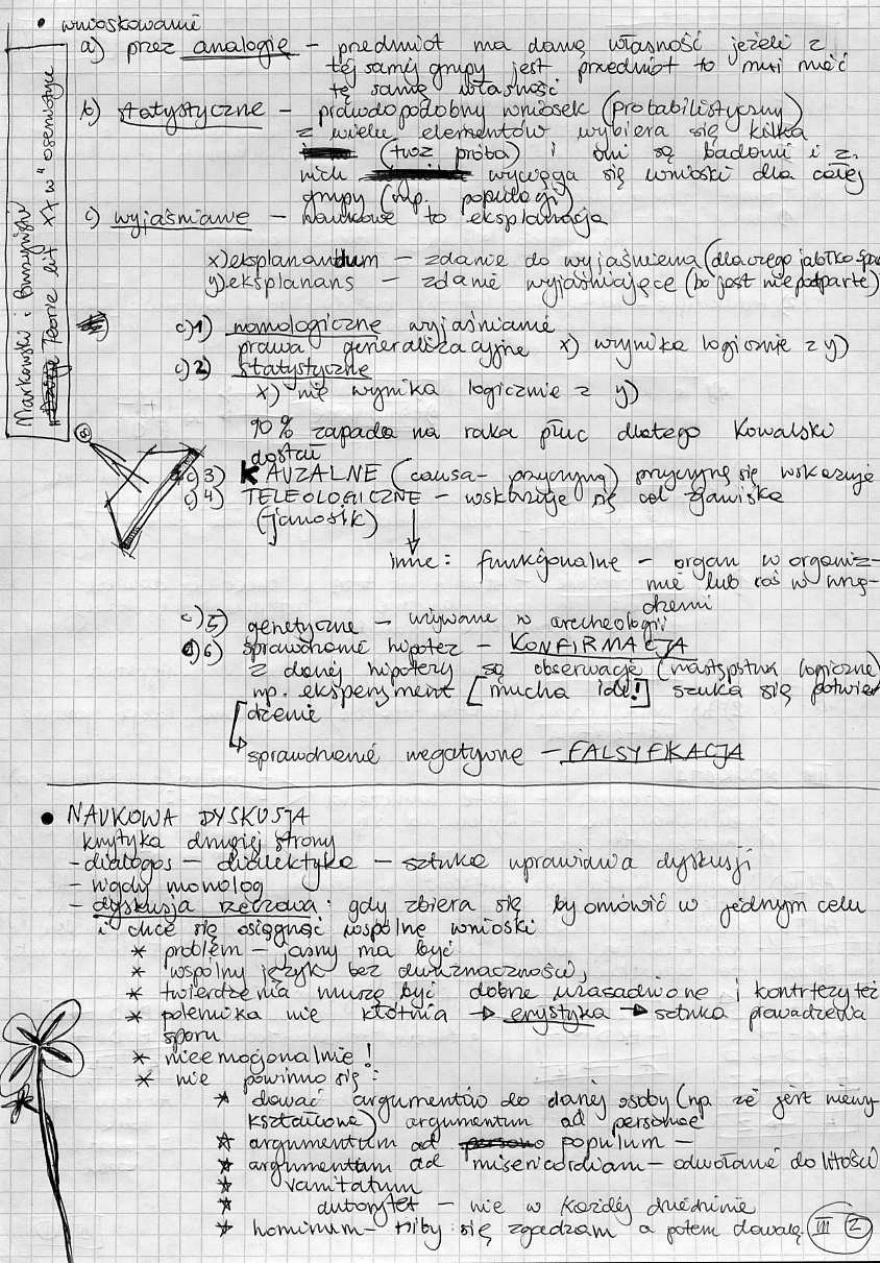 • wnioskowanie
a) przez analogię – przedmiot ma daną własność jeżeli z
tej samej grupy jest przedmiot to musi mieć
tę samą własność
b) statystyczne – prawdopodobny wniosek (probabilistyczny)
z wielu elementów wybiera się kilka
(tvoz próba) i oni są badani i z
nich wyciąga się wnioski dla całej
grupy (np. populacji)
c) wyjaśnianie – naukowe to eksplanacja
x) eksplanandum – zdanie do wyjaśnienia (dlaczego jabłko spa
y) eksplanans – zdanie wyjaśniające (bo jest niepodparte)
c) 1) nomologiczne wyjaśnianie
prawa generalizacyjne x) wynika logicznie z y)
c) 2) statystyczne
x) nie wynika logicznie z y)
90% zapada na raka płuc dlatego Kowalski
dostał
c) 3) KAUZALNE (causa- przyczyna) przyczynę się wskazuje
c) 4) TELEOLOGICZNE – wskazuje się cel zjawiska
(janosik)
inne: funkcjonalne – organ w organiz-
mie lub coś w urzą-
dzeniu
c) 5) genetyczne – używane w archeologii
d) 6) sprawdzanie hipotez – KONFIRMACJA
z danej hipotezy są obserwacje (następstwa logiczne)
np. eksperyment [mucha idzie!] szuka się potwier
dzenie
sprawdzenie negatywne – FALSYFIKACJA
Markowski i Burzyńska
Teorie lit XX w" o semiotyce
• NAUKOWA DYSKUSJA
krytyka drugiej strony
- dialogos – dialektyka – sztuka uprawiania dyskusji
- nigdy monolog
- dyskusja rzeczowa: gdy zbiera się by omówić w jednym celu
i chce się osiągnąć wspólne wnioski
* problem – jasny ma być
* wspólny język bez dwuznaczności,
* twierdzenia muszą być dobrze uzasadnione i kontrtezy też
* polemika nie kłótnia → erystyka → sztuka prowadzenia
sporu
* nieemocjonalnie!
* nie powinno się:
* dawać argumentów do danej osoby (np. że jest niewy-
kształcona) argumentum ad personae
* argumentum ad populum –
* argumentum ad misericordiam – odwołanie do litości
* vanitatum
* autorytet – nie w każdej dziedzinie
* hominum – niby się zgadzam a potem dowalę
III 2